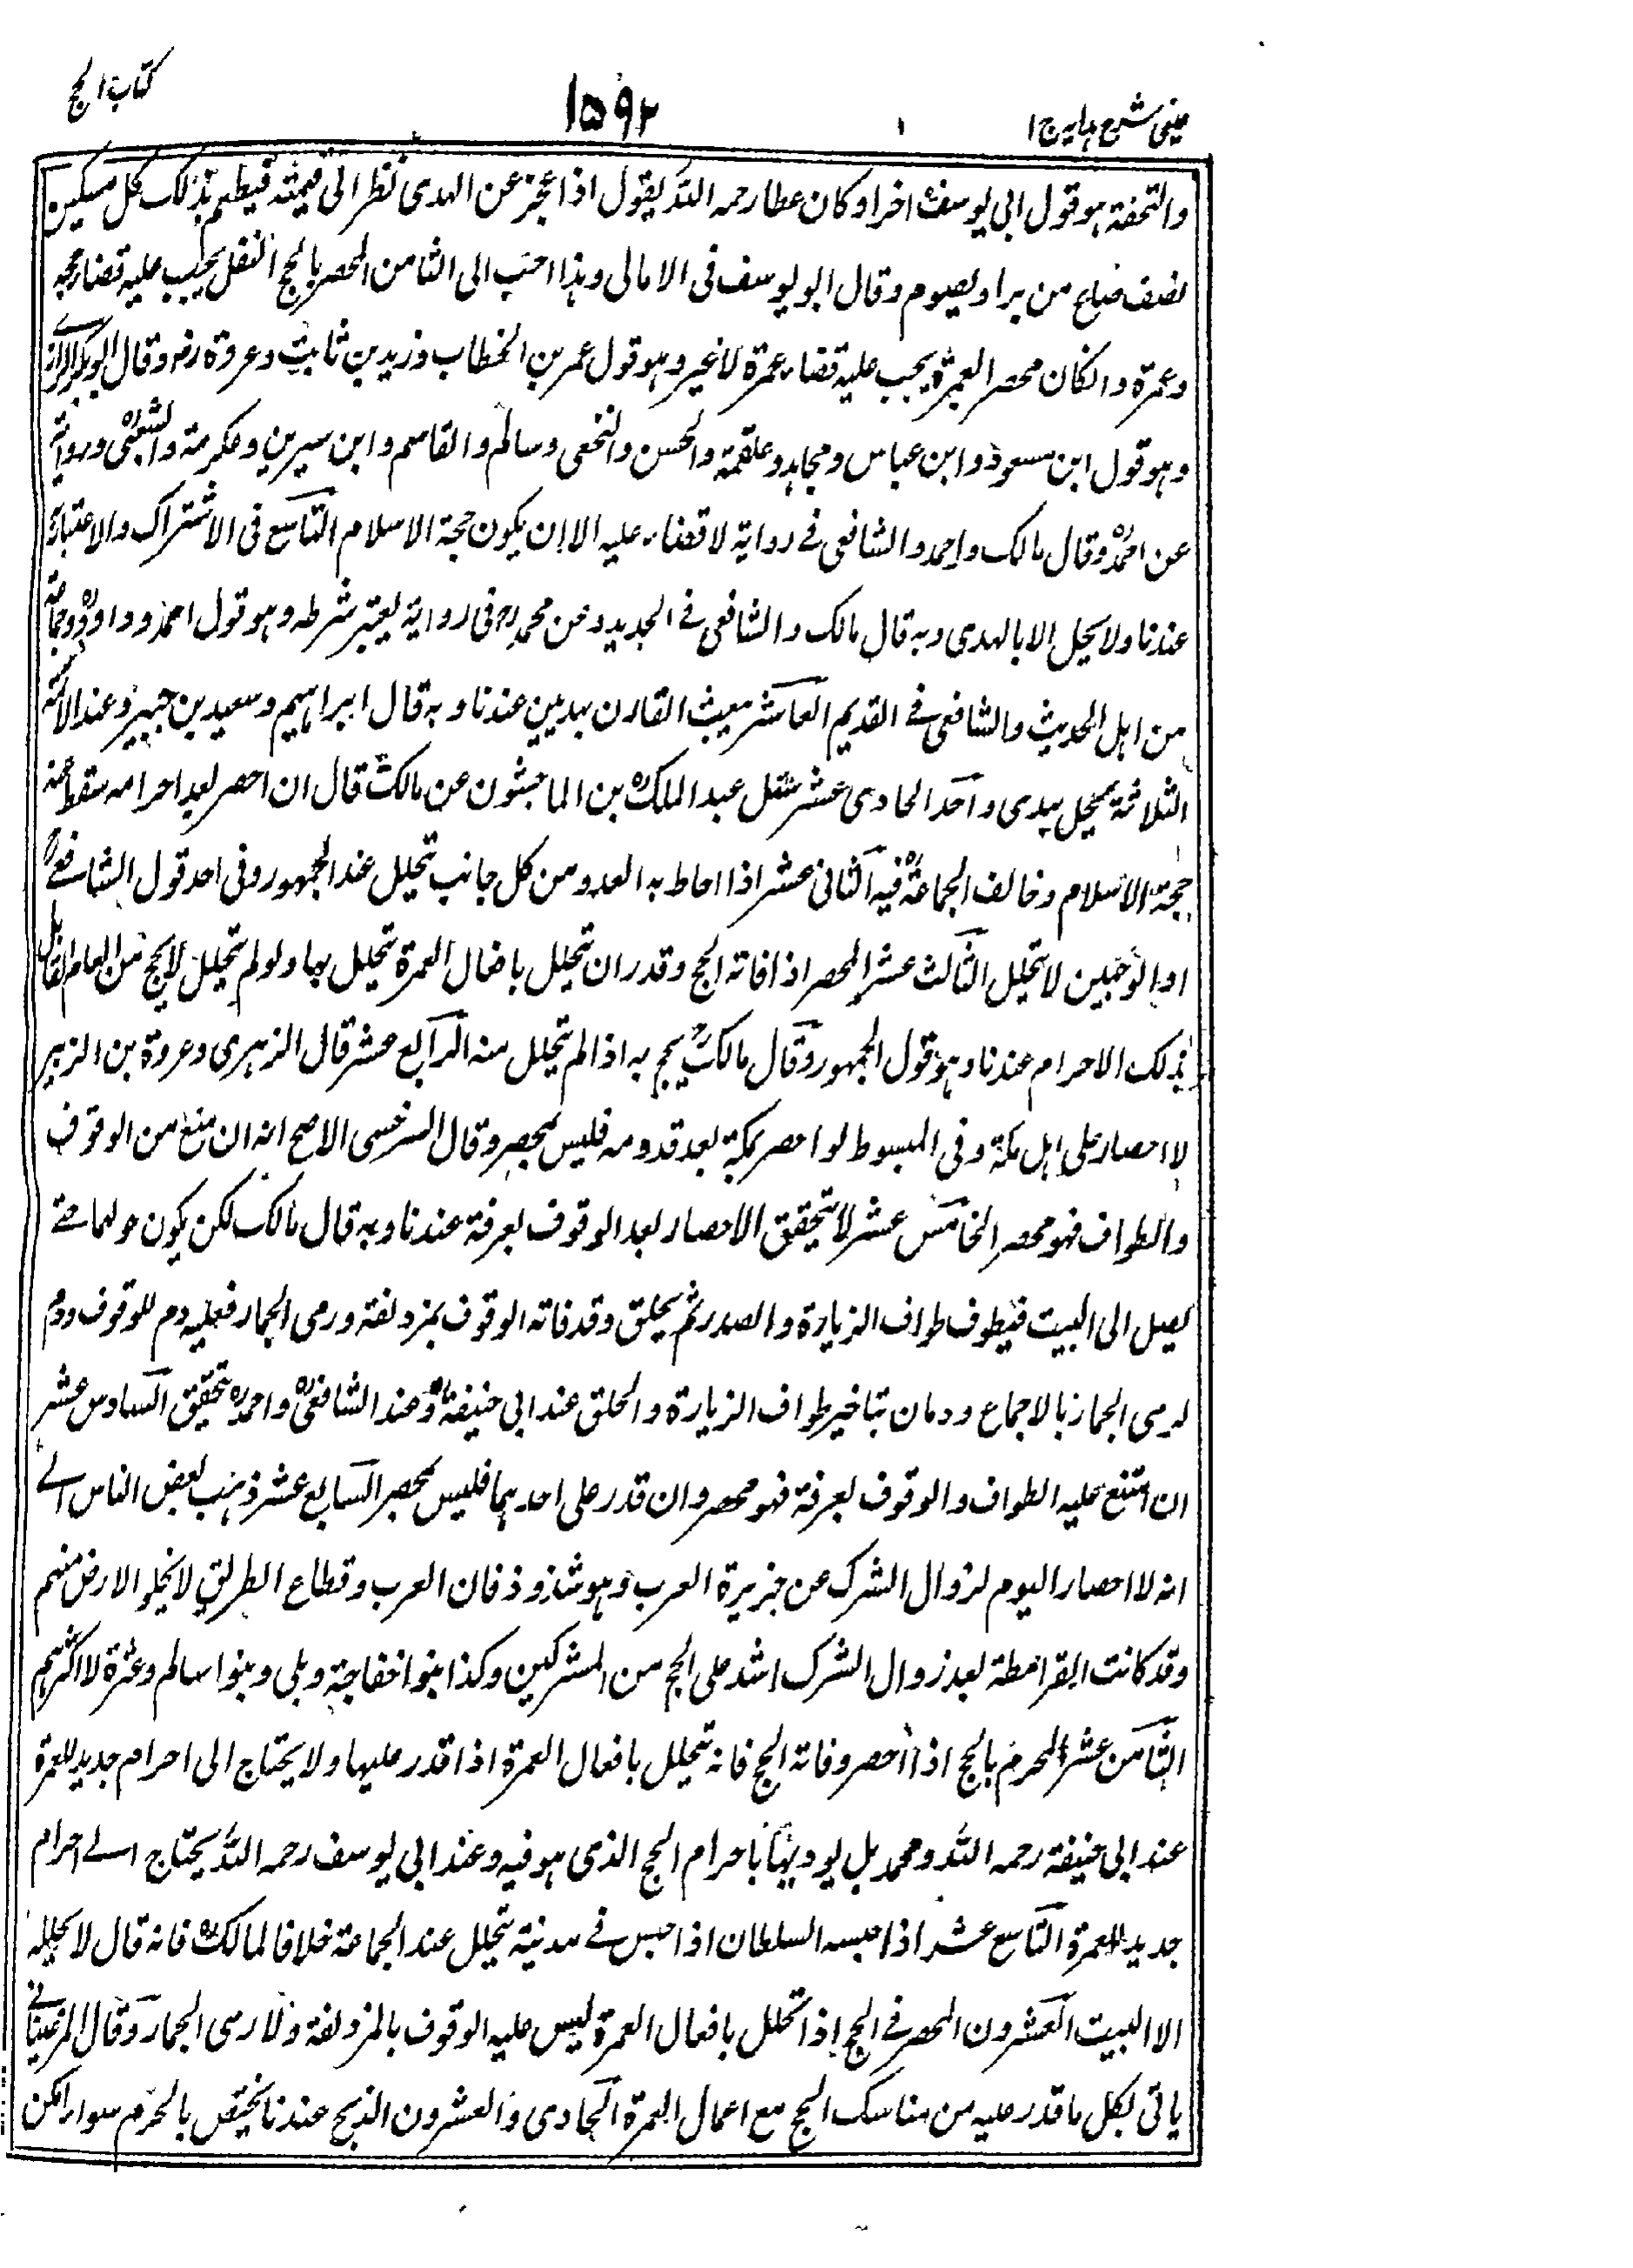 عینی شرح ہدایہ ج ۱
۱۵۹۲
کتاب الحج
والتحفة ہو قول ابی یوسفؒ اخرا وکان عطا رحمہ اللہ یقول اذا عجز عن الہدی نظر الی قیمتہ فیطعم بذلک کل مسکین
نصف صاع من بر او یصوم وقال ابو یوسف فی الامالی وہذا احب الی الثامن المحصر بالحج النفل یجب علیہ قضاء حجة
وعمرة وانکان محصر العمرة یجب علیہ قضاء عمرة لا غیر وہو قول عمر بن الخطاب وزید بن ثابت وعروة رضہ وقال ابوبکر الرازی
وہو قول ابن مسعودؓ وابن عباس ومجاہد وعلقمة والحسن والنخعی وسالم والقاسم وابن سیرین وعکرمة والشعبیؒ وروایة
عن احمدؒ وقال مالک واحمد والشافعی فے روایة لا قضاء علیہ الا ان یکون حجة الاسلام التاسع فی الاشتراک والاعتبار
عندنا ولا یحل الا بالہدی وبہ قال مالک والشافعی فے الجدید وعن محمدؒ فی روایة یعتبر شرطہ وہو قول احمد وداودؒ وجماعة
من اہل الحدیث والشافعی فے القدیم العاشر یبعث القارن بہدیین عندنا وبہ قال ابراہیم وسعید بن جبیرؓ وعند الائمة
الثلاثة یحل بہدی واحد الحادی عشر نقل عبد الملکؒ بن الماجشون عن مالکؒ قال ان احصر بعد احرامہ سقط عنہ
حجة الاسلام وخالف الجماعةؒ فیہ الثانی عشر اذا احاط بہ العدو من کل جانب تحلل عند الجمہور وفی احد قول الشافعےؒ
او الوجہین لا تحلل الثالث عشر المحصر اذا فاتہ الحج وقدر ان تحلل بافعال العمرة تحلل بہا ولو لم تحلل لا یحج من العام القابل
بذلک الاحرام عندنا وہو قول الجمہور وقال مالکؒ یحج بہ اذا لم تحلل منہ الرابع عشر قال الزہری وعروة بن الزبیر
لا احصار علی اہل مکة وفی المبسوط لو احصر بمکة بعد قدومہ فلیس بمحصر وقال السرخسی الاصح انہ ان منع من الوقوف
والطواف فہو محصر الخامس عشر لا یتحقق الاحصار بعد الوقوف بعرفة عندنا وبہ قال مالک لکن یکون حراما حتے
یصل الی البیت فیطوف طواف الزیارة والصدر ثم یحلق وقد فاتہ الوقوف بمزدلفة ورمی الجمار فعلیہ دم للوقوف ودم
لرمی الجمار بالاجماع ودمان بتاخیر طواف الزیارة والحلق عند ابی حنیفةؒ وعند الشافعیؒ واحمدؒ تحقیق السادس عشر
ان امتنع علیہ الطواف والوقوف بعرفة فہو محصر وان قدر علی احدہما فلیس بمحصر السابع عشر ذہب بعض الناس الے
انہ لا احصار الیوم لزوال الشرک عن جزیرة العرب وہو شذوذ فان العرب وقطاع الطریق لا تخلو الارض منہم
وقد کانت القرامطة بعد زوال الشرک اشد علی الحج من المشرکین وکذا بنوا خفاجة وبلی وبنوا سالم وعنزة لا اکثرہم
الثامن عشر المحرم بالحج اذا احصر وفاتہ الحج فانہ تحلل بافعال العمرة اذا قدر علیہا ولا یحتاج الی احرام جدید للعمرة
عند ابی حنیفة رحمہ اللہ ومحمد بل یودیہا باحرام الحج الذی ہو فیہ وعند ابی یوسف رحمہ اللہ یحتاج الے احرام
جدید للعمرة التاسع عشر اذا حبسہ السلطان اذا حبس فے مدینة تحلل عند الجماعة خلافا لمالکؒ فانہ قال لا یحللہ
الا البیت العشرون المحصر فے الحج اذا تحلل بافعال العمرة لیس علیہ الوقوف بالمزدلفة ولا رمی الجمار وقال المرغینانی
یاتی بکل ما قدر علیہ من مناسک الحج مع اعمال العمرة الحادی والعشرون الذبح عندنا یختص بالحرم سواء امکن